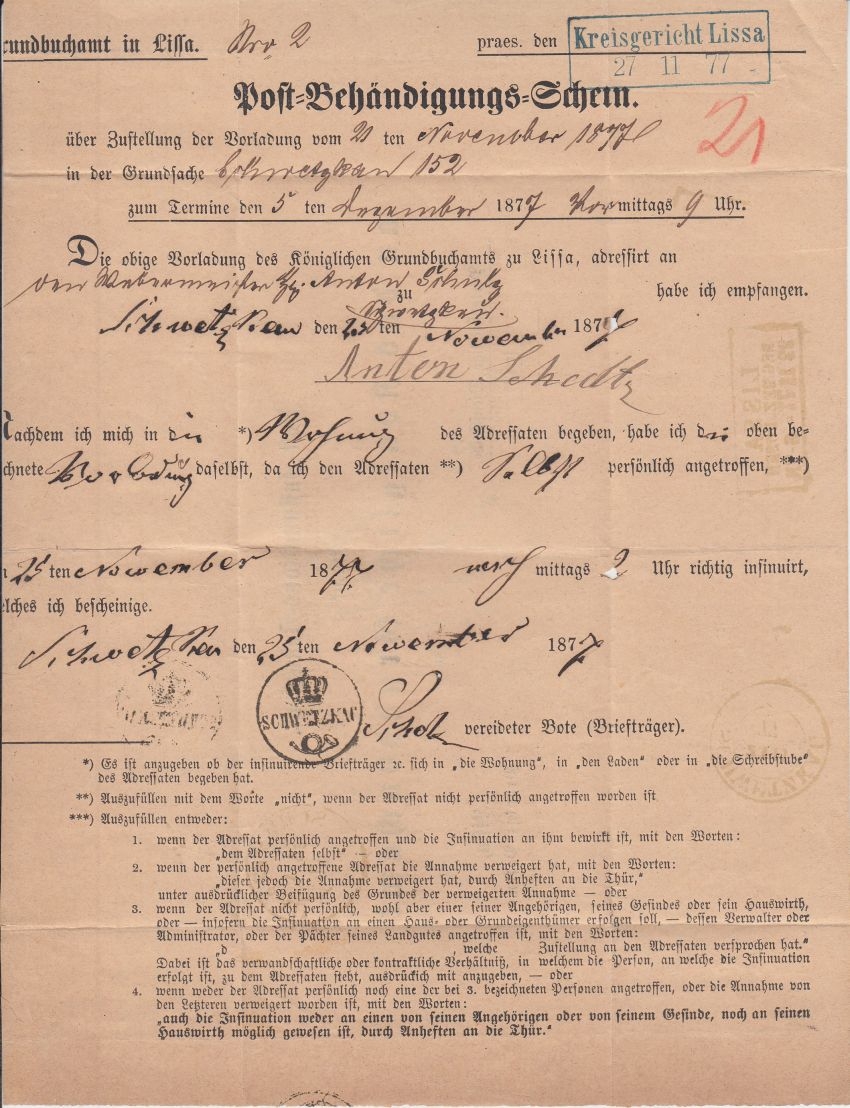 rundbuchamt in Lissa. Nro 2 praes. den
Kreisgericht Lissa
27 11 77
Post-Behändigungs-Schein.
21
über Zustellung der Vorladung vom 21 ten November 1877
in der Grundsache Schwetzkau 152
zum Termine den 5 ten Dezember 1877 Vormittags 9 Uhr.
Die obige Vorladung des Königlichen Grundbuchamts zu Lissa, adressirt an
den Webermeister Anton
zu Schwetzkau. habe ich empfangen.
Schwetzkau den 25 ten November 1877
Anton
Nachdem ich mich in die *) Wohnung des Adressaten begeben, habe ich die oben be-
chnete daselbst, da ich den Adressaten **) Selbst persönlich angetroffen, ***)
n 25 ten November 1877 nach mittags 2 Uhr richtig insinuirt,
elches ich bescheinige.
Schwetzkau den 25 ten November 1877
SCHWETZKAU
vereideter Bote (Briefträger).
*) Es ist anzugeben ob der insinuirende Briefträger ꝛc. sich in „die Wohnung", in „den Laden" oder in „die Schreibstube"
des Adressaten begeben hat.
**) Auszufüllen mit dem Worte „nicht", wenn der Adressat nicht persönlich angetroffen worden ist
***) Auszufüllen entweder:
1. wenn der Adressat persönlich angetroffen und die Insinuation an ihm bewirkt ist, mit den Worten:
„dem Adressaten selbst" — oder
2. wenn der persönlich angetroffene Adressat die Annahme verweigert hat, mit den Worten:
„dieser jedoch die Annahme verweigert hat, durch Anheften an die Thür,"
unter ausdrücklicher Beifügung des Grundes der verweigerten Annahme — oder
3. wenn der Adressat nicht persönlich, wohl aber einer seiner Angehörigen, seines Gesindes oder sein Hauswirth,
oder — insofern die Insinuation an einen Haus- oder Grundeigenthümer erfolgen soll, — dessen Verwalter oder
Administrator, oder der Pächter seines Landgutes angetroffen ist, mit den Worten:
„d , welche Zustellung an den Adressaten versprochen hat."
Dabei ist das verwandschaftliche oder kontraktliche Verhältniß, in welchem die Person, an welche die Insinuation
erfolgt ist, zu dem Adressaten steht, ausdrücklich mit anzugeben, — oder
4. wenn weder der Adressat persönlich noch eine der bei 3. bezeichneten Personen angetroffen, oder die Annahme von
den Letzteren verweigert worden ist, mit den Worten:
„auch die Insinuation weder an einen von seinen Angehörigen oder von seinem Gesinde, noch an seinen
Hauswirth möglich gewesen ist, durch Anheften an die Thür."